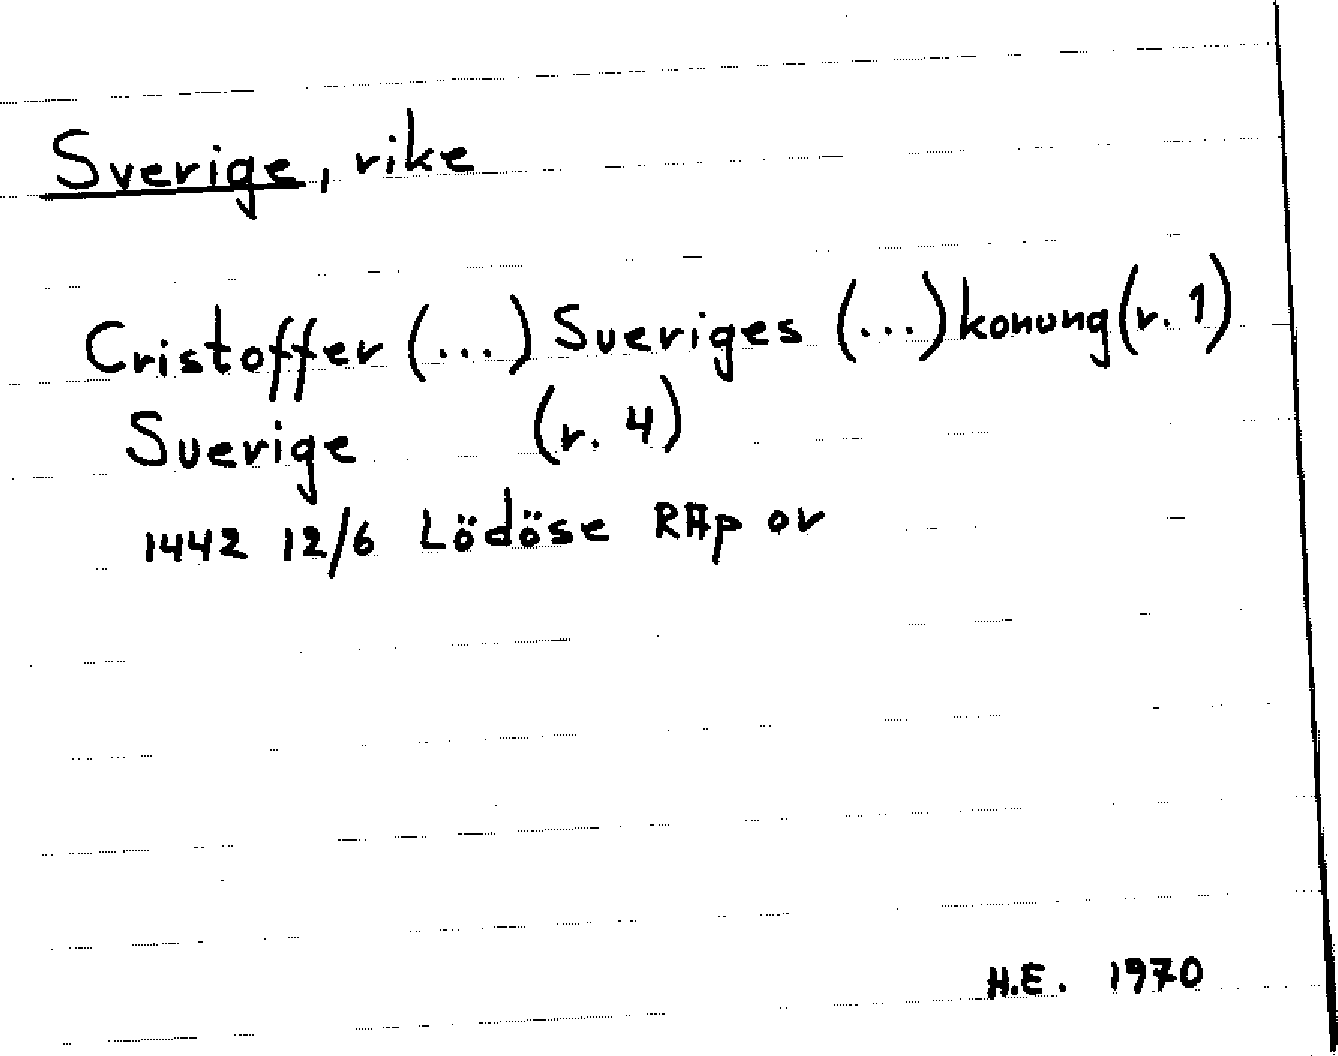 Sverige, rike
Cristoffer (...) Sueriges (...) konung (r. 1)
Suerige (r. 4)
1442 12/6 Lödöse RAp or
H.E. 1970